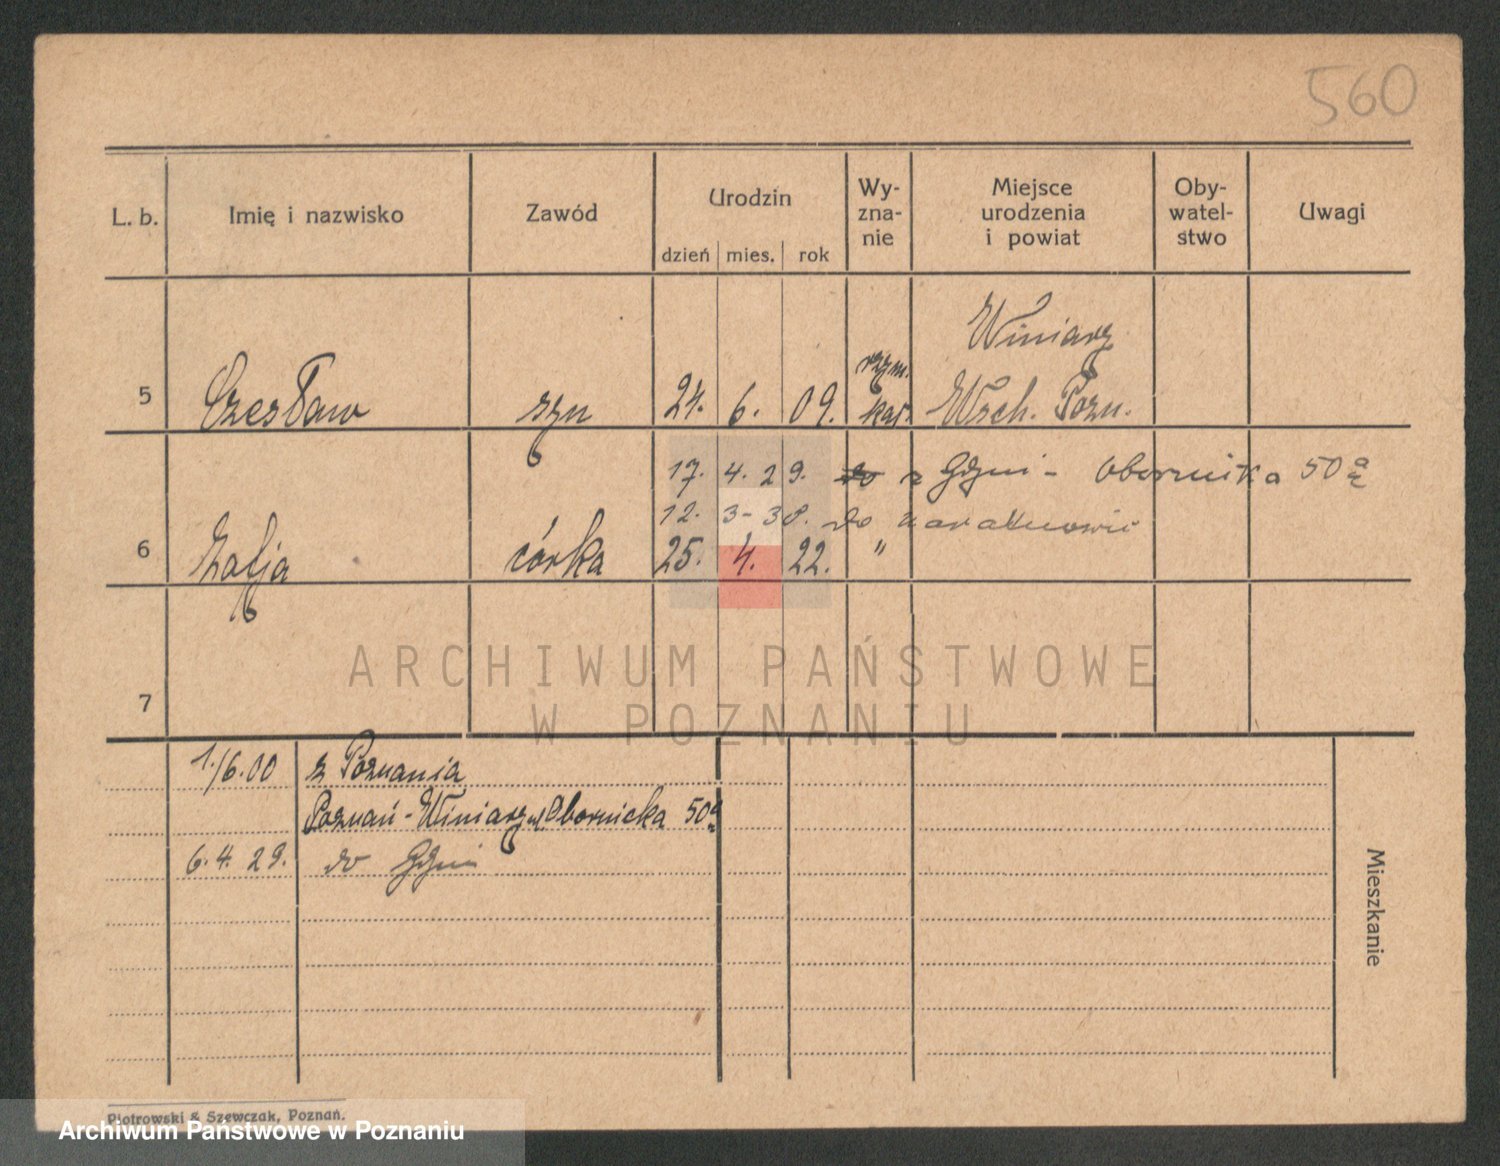 560
L. b. Imię i nazwisko Zawód Urodzin Wy-zna-nie Miejsce urodzenia i powiat Oby-watel-stwo Uwagi
dzień mies. rok
Winiary
5 Czesław syn 24. 6. 09. rzym. kat. Wsch. Pozn.
17. 4. 29. do z Gdyni - Obornicka 50a
12. 3 - 38. do
6 Zofja córka 25. 4. 22. "
ARCHIWUM PAŃSTWOWE
7
W POZNANIU
1./6.00 z Poznania
Poznań - Winiary ul Obornicka 50a
6. 4. 29. do Gdyni
Mieszkanie
Piotrowski & Szewczak, Poznań.
Archiwum Państwowe w Poznaniu